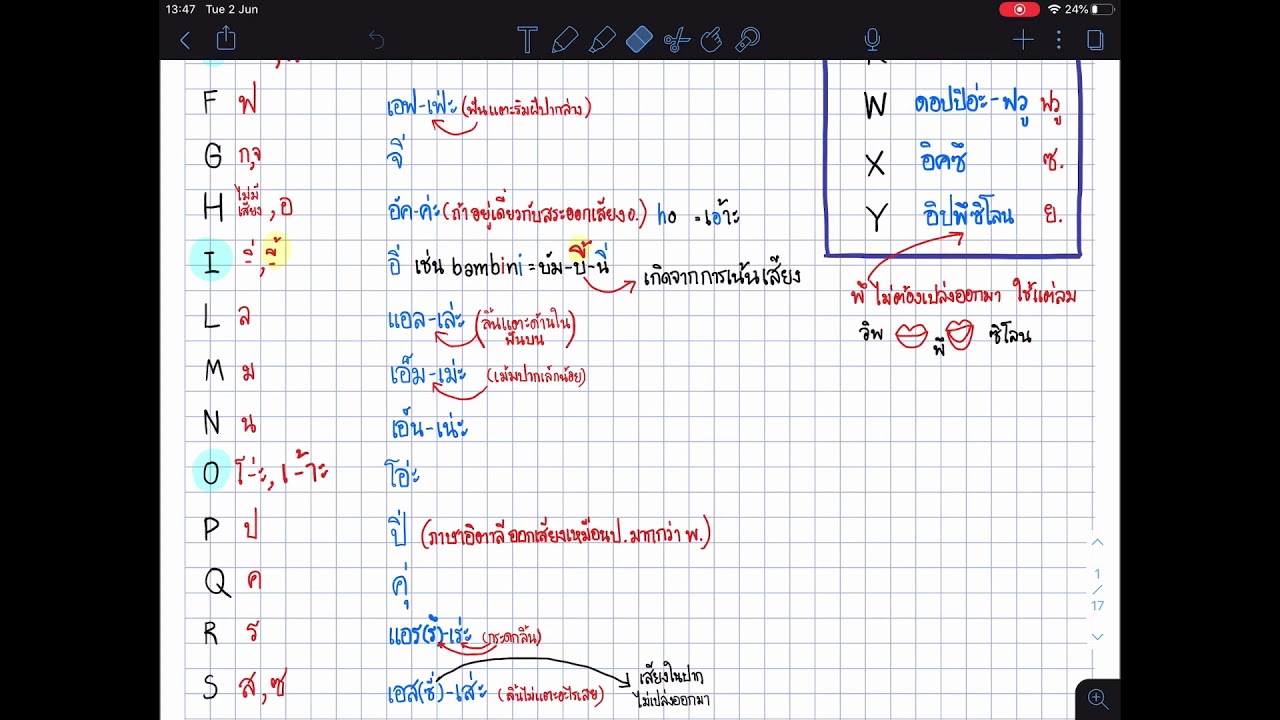 13:47 Tue 2 Jun
24%
F ฟ เอฟ-เฟ่ะ (ฟันแตะริมฝีปากล่าง)
G ก,จ จี่
H ไม่มีเสียง , อ อัค-ค่ะ (ถ้าอยู่เดี่ยวกับสระออกเสียง อ.) ho = เอ้าะ
I -ี่, -ี้ อี่ เช่น bambini = บัม-บี้-นี่ เกิดจากการเน้นเสียง
L ล แอล-เล่ะ (ลิ้นแตะด้านในฟันบน)
M ม เอ็ม-เม่ะ (เม้มปากเล็กน้อย)
N น เอ็น-เน่ะ
O โ-่ะ, เ-้าะ โอ่ะ
P ป ปี่ (ภาษาอิตาลีออกเสียงเหมือน ป. มากกว่า พ.)
Q ค คุ่
R ร แอร(รึ)-เร่ะ (กระดกลิ้น)
S ส,ซ เอส(ซึ่)-เส่ะ (ลิ้นไม่แตะอะไรเลย) เสียงในปาก
ไม่เปล่งออกมา
W ดอปปิอ่ะ-ฟวู ฟวู
X อิคซึ ซ.
Y อิปพึซิโลน ย.
พึ ไม่ต้องเปล่งออกมา ใช้แต่ลม
อิพ พึ ซิโลน
1
/
17